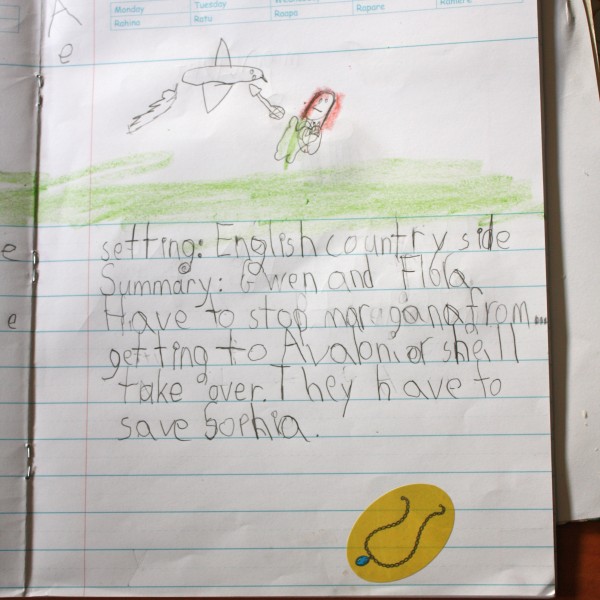 A
e
Monday Tuesday
Rahina Ratu Raapa Rapare
setting: English country side
Summary: Gwen and Flola
Have to stop maragana from
getting to Avalon or shell
take over. They have to
save Sophia.
e
e